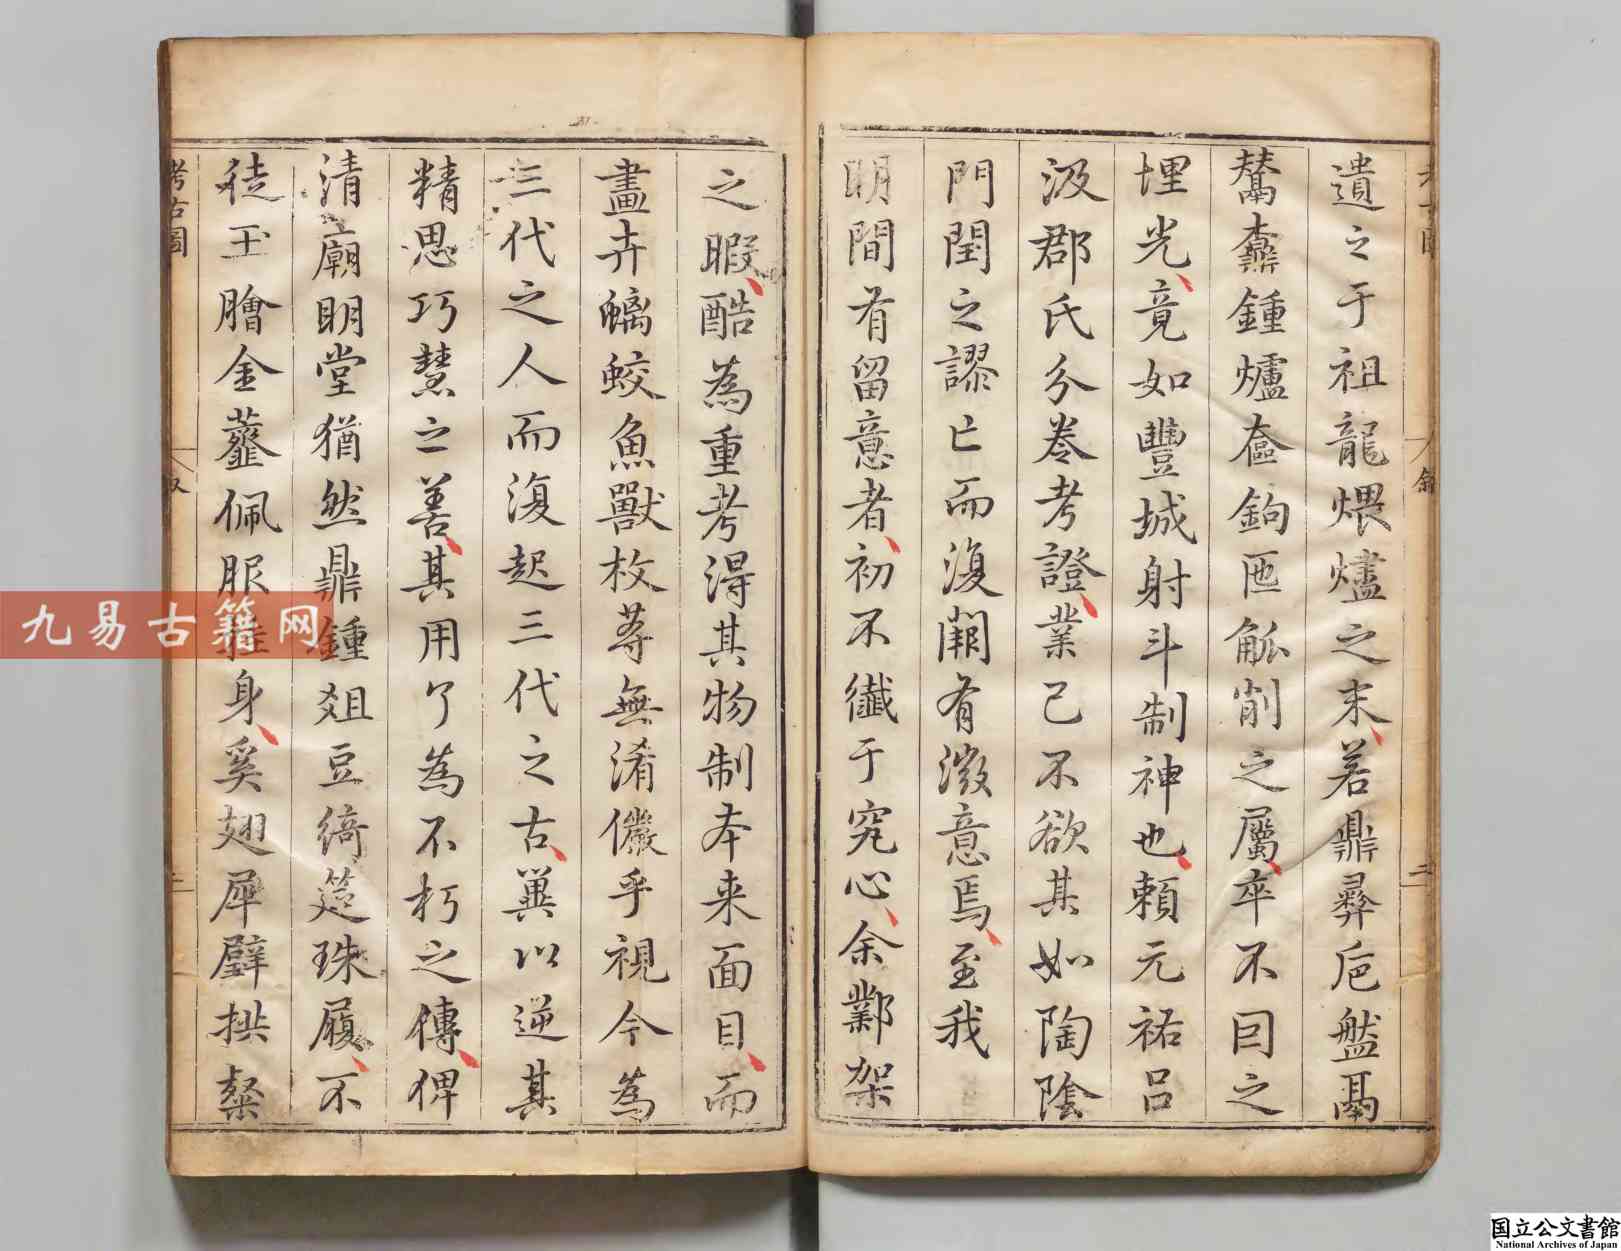 遺之于祖龍煨燼之末若鼎彞巵盤鬲
鬵鼒鍾爐奩鉤匜觚削之屬卒不囙之
埋光竟如豐城射斗制神也頼元祐呂
汲郡氏分卷考證業已不欲其如陶陰
門閏之謬亡而復闕有微意焉至我
明間有留意者初不纖于究心余鄴架
之暇酷為重考得其物制本来面目而
畫卉螭蛟魚獸枚荐無淆儼乎視今為
三代之人而復起三代之古兾以逆其
精思巧慧之善其用了為不朽之傳俾
清廟明堂猶然鼎鍾爼豆綺筵珠履不
徒玉膾金虀佩服身奚翅犀璧拱粲
考古圖
叙
九易古籍网
国立公文書館
National Archives of Japan